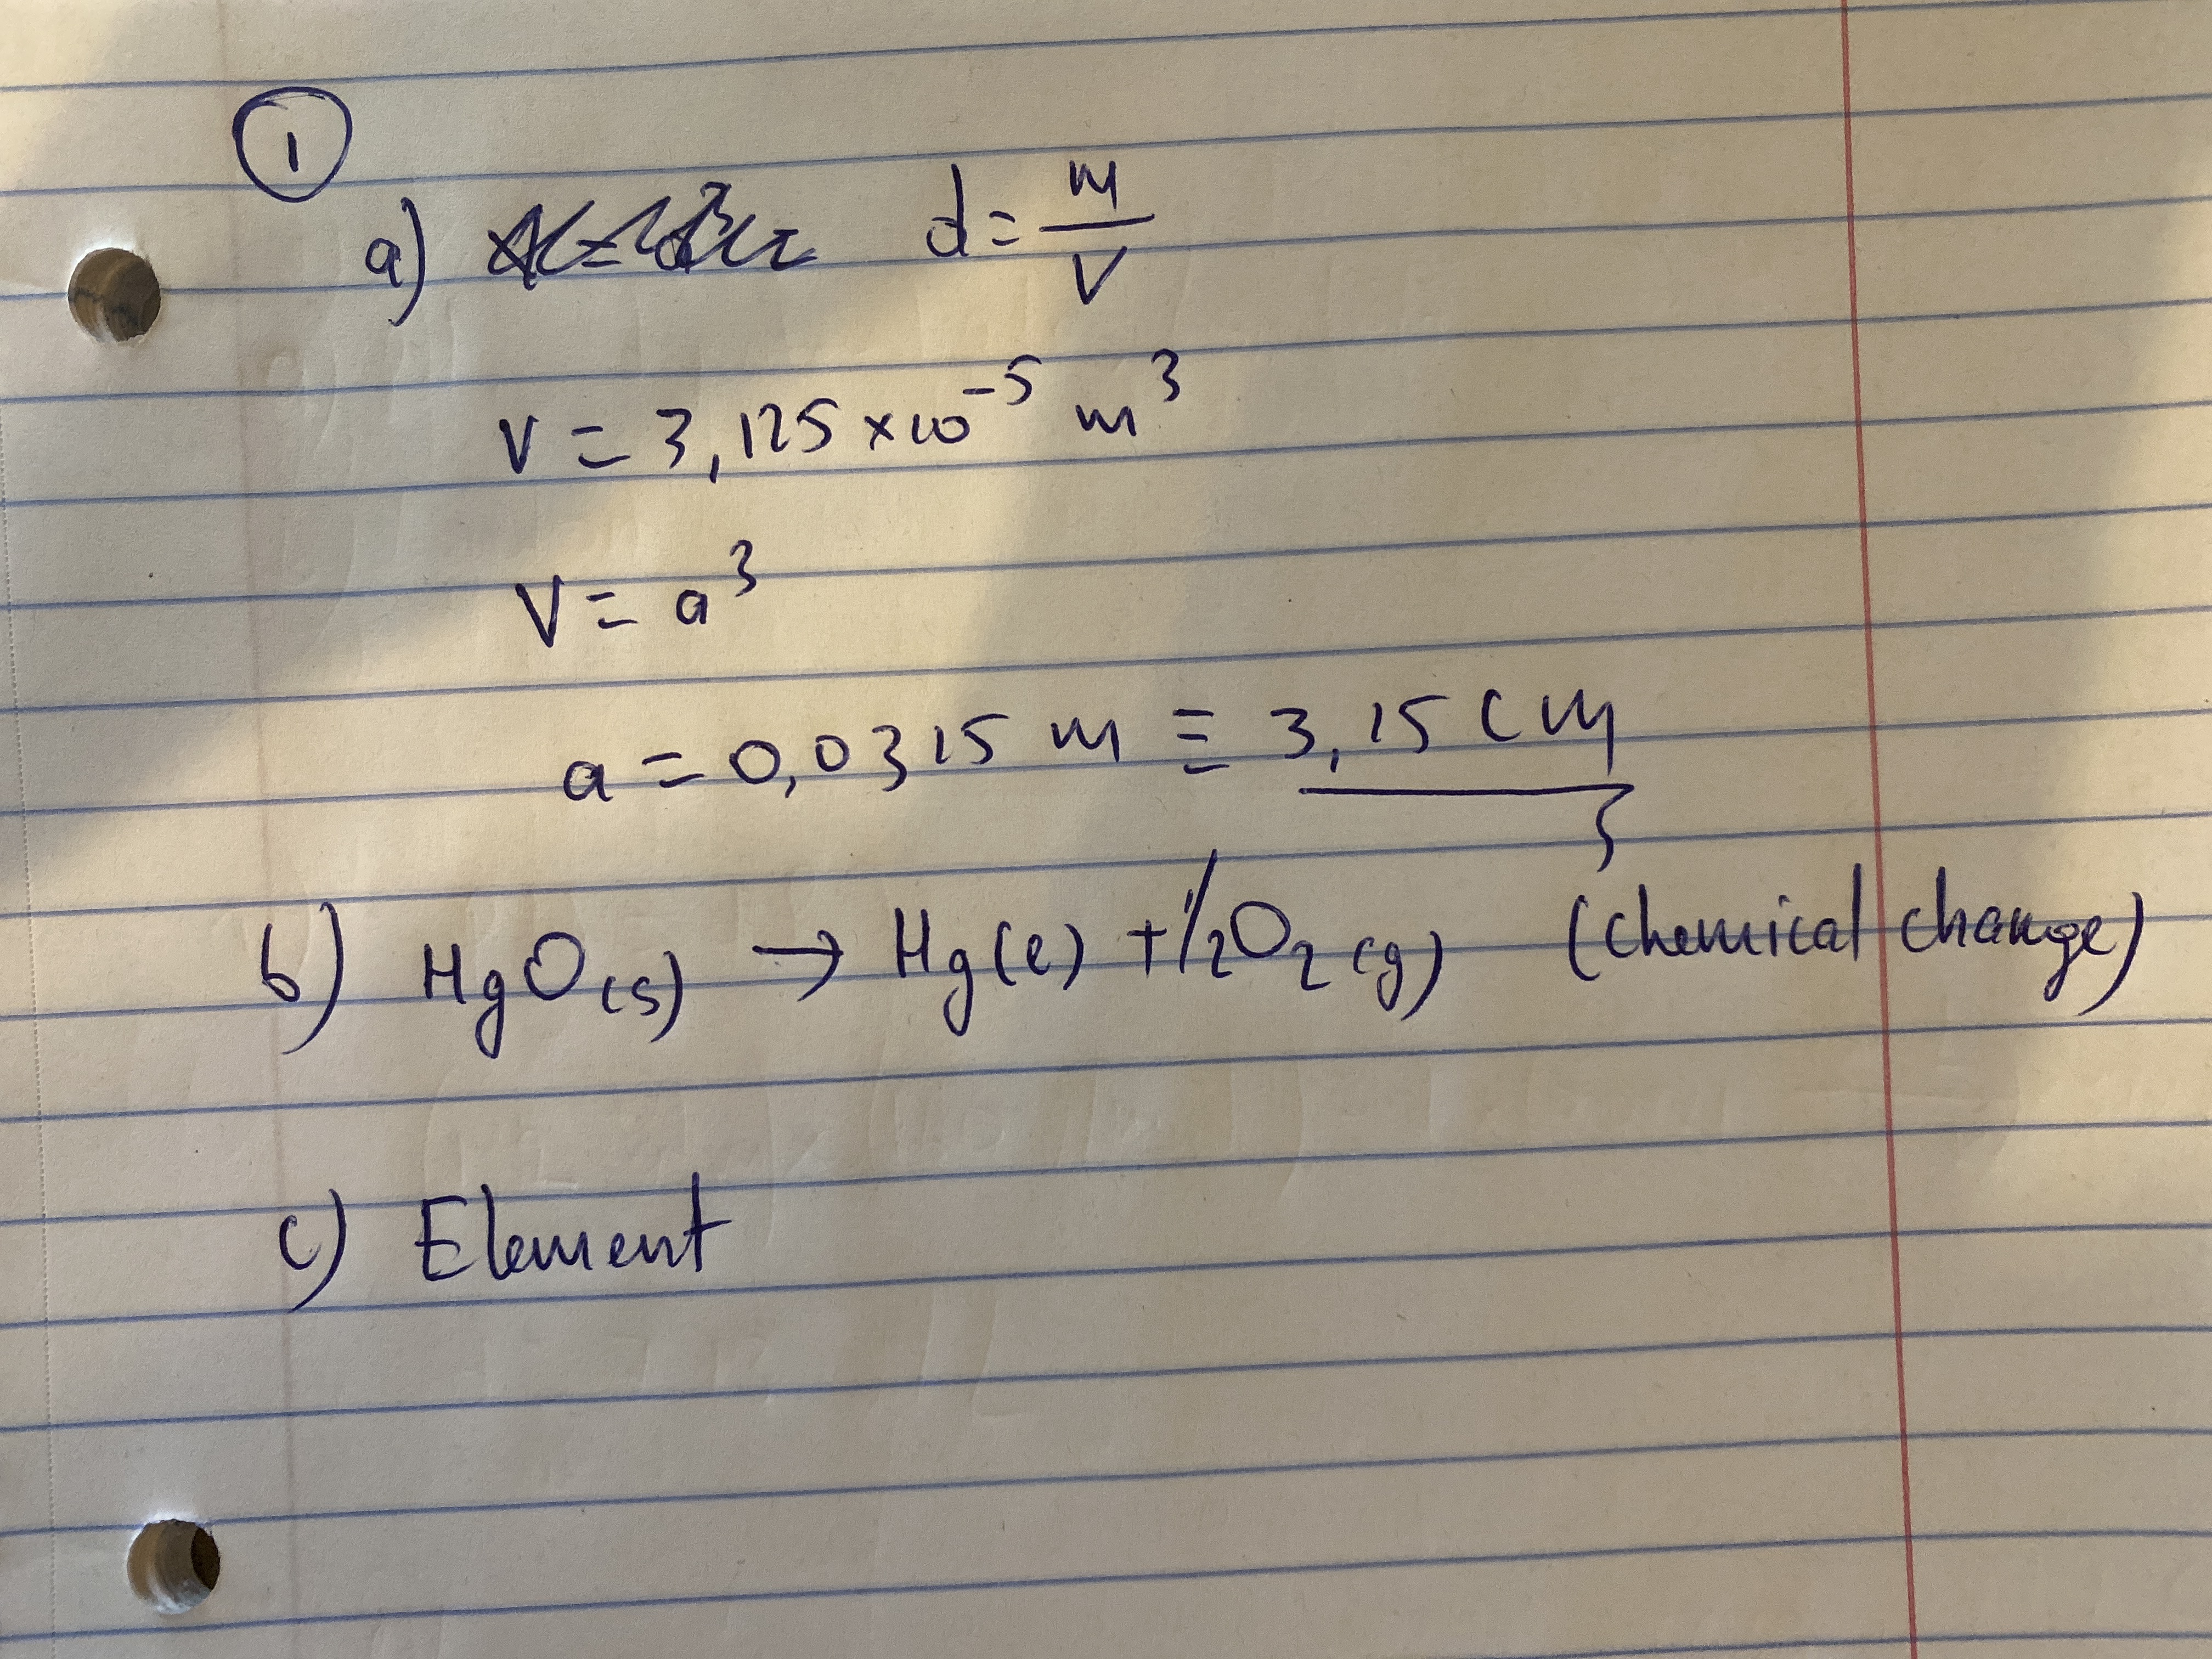 1
a) d = m/V
V = 3,125 × 10⁻⁵ m³
V = a³
a = 0,0315 m ≡ 3,15 cm
b) HgO(s) → Hg(ℓ) + 1/2O₂(g) (Chemical change)
c) Element